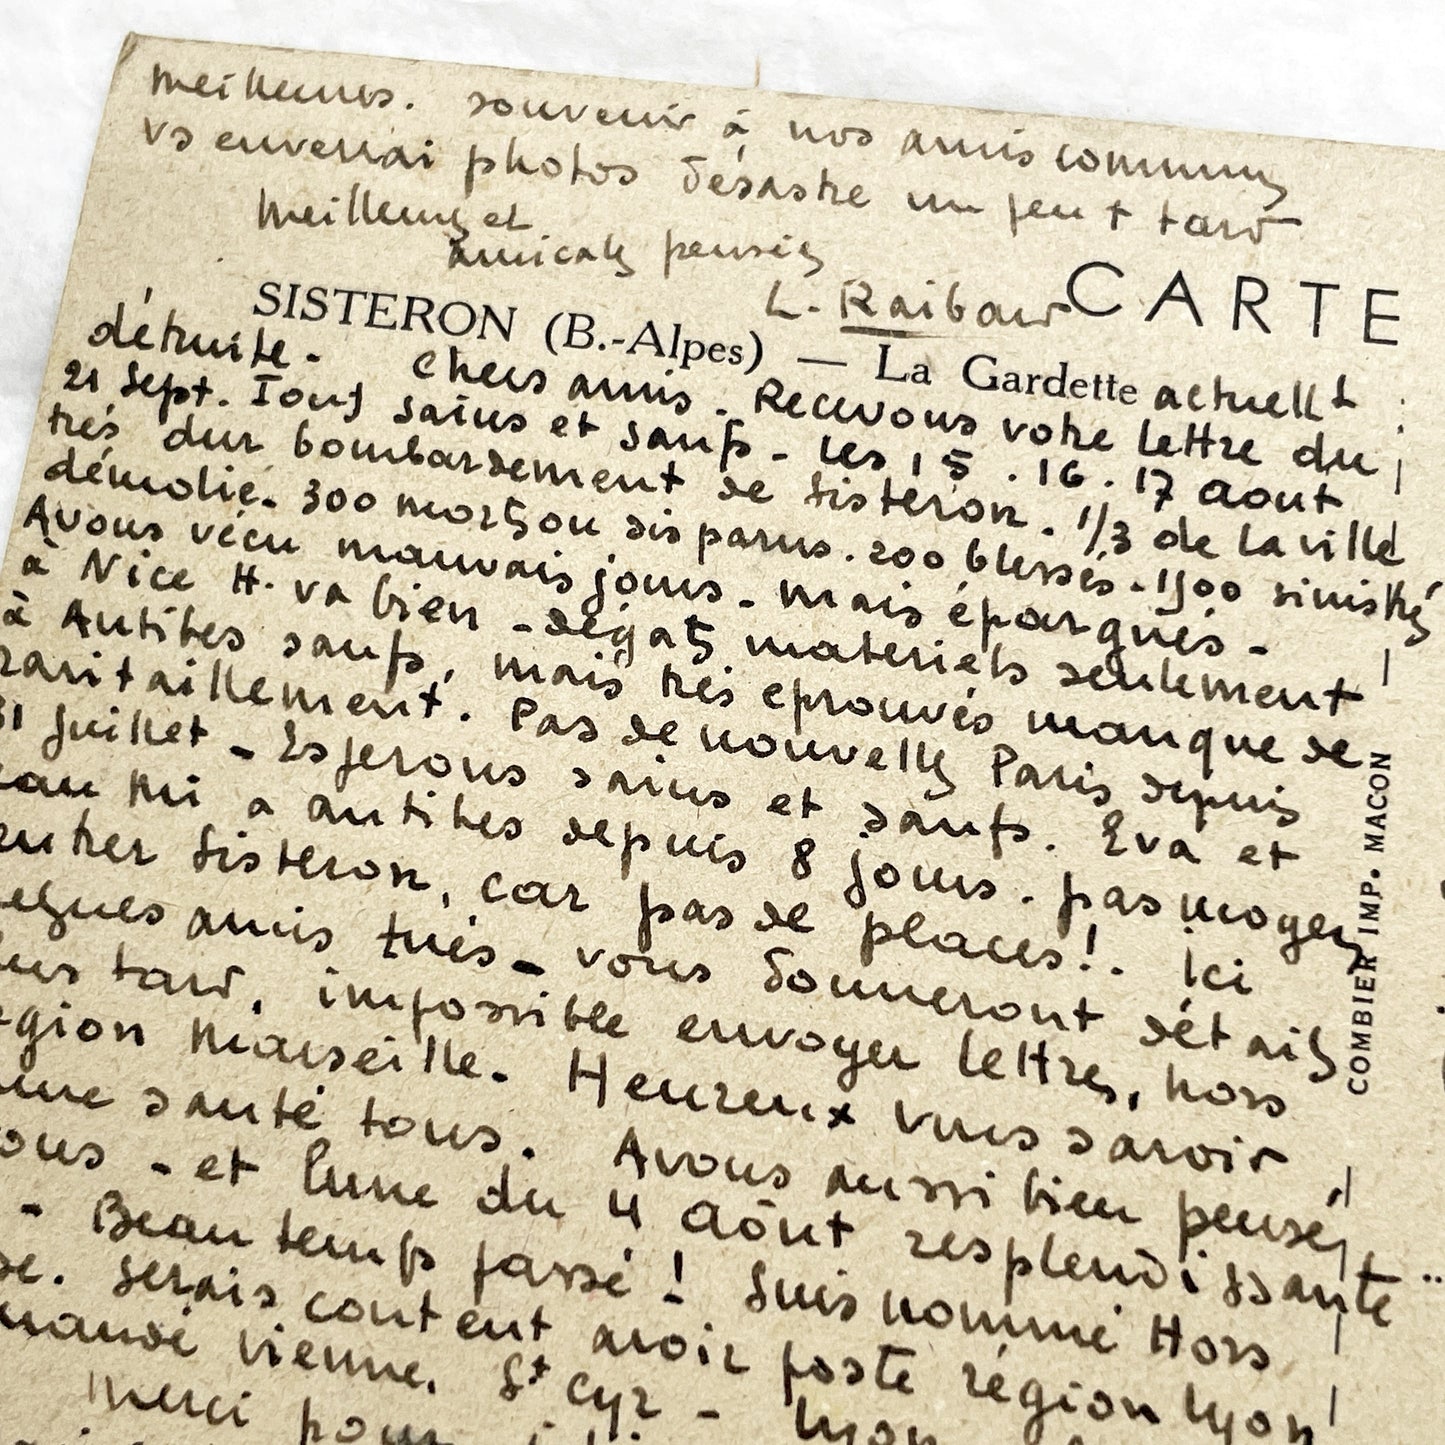 meilleures. souvenir à nos amis communs
vs enverrai photos désastre un peu + tard
Meilleures et
amicales pensées
L. Raibaud
CARTE
SISTERON (B.-Alpes) — La Gardette actuellt
détruite. Chers amis. Recevons votre lettre du
21 Sept. Tous sains et saufs - les 15. 16. 17 aout
très dur bombardement de Sisteron. 1/3 de la ville
démolie. 300 morts ou disparus. 200 blessés. 1500 sinistrés
Avons vécu mauvais jours - mais épargnés -
à Nice H. va bien - dégats materiels seulement
à Antibes saufs, mais très eprouvés manque de
ravitaillement. Pas de nouvelles Paris depuis
31 Juillet - Esperons sains et saufs. Eva et
a antibes depuis 8 jours. pas moyen
entrer Sisteron, car pas de places! Ici
amis tués - vous donneront détails
tard, impossible envoyer lettres, hors
Marseille. Heureux vous savoir
santé tous. Avons aussi bien pensé
- et lune du 4 Aôut resplendissante
- Beau temps passé ! Suis nommé Hors
Serais content avoir poste région Lyon
Vienne. St Cyr - Lyon
Merci pour
COMBIER IMP. MACON